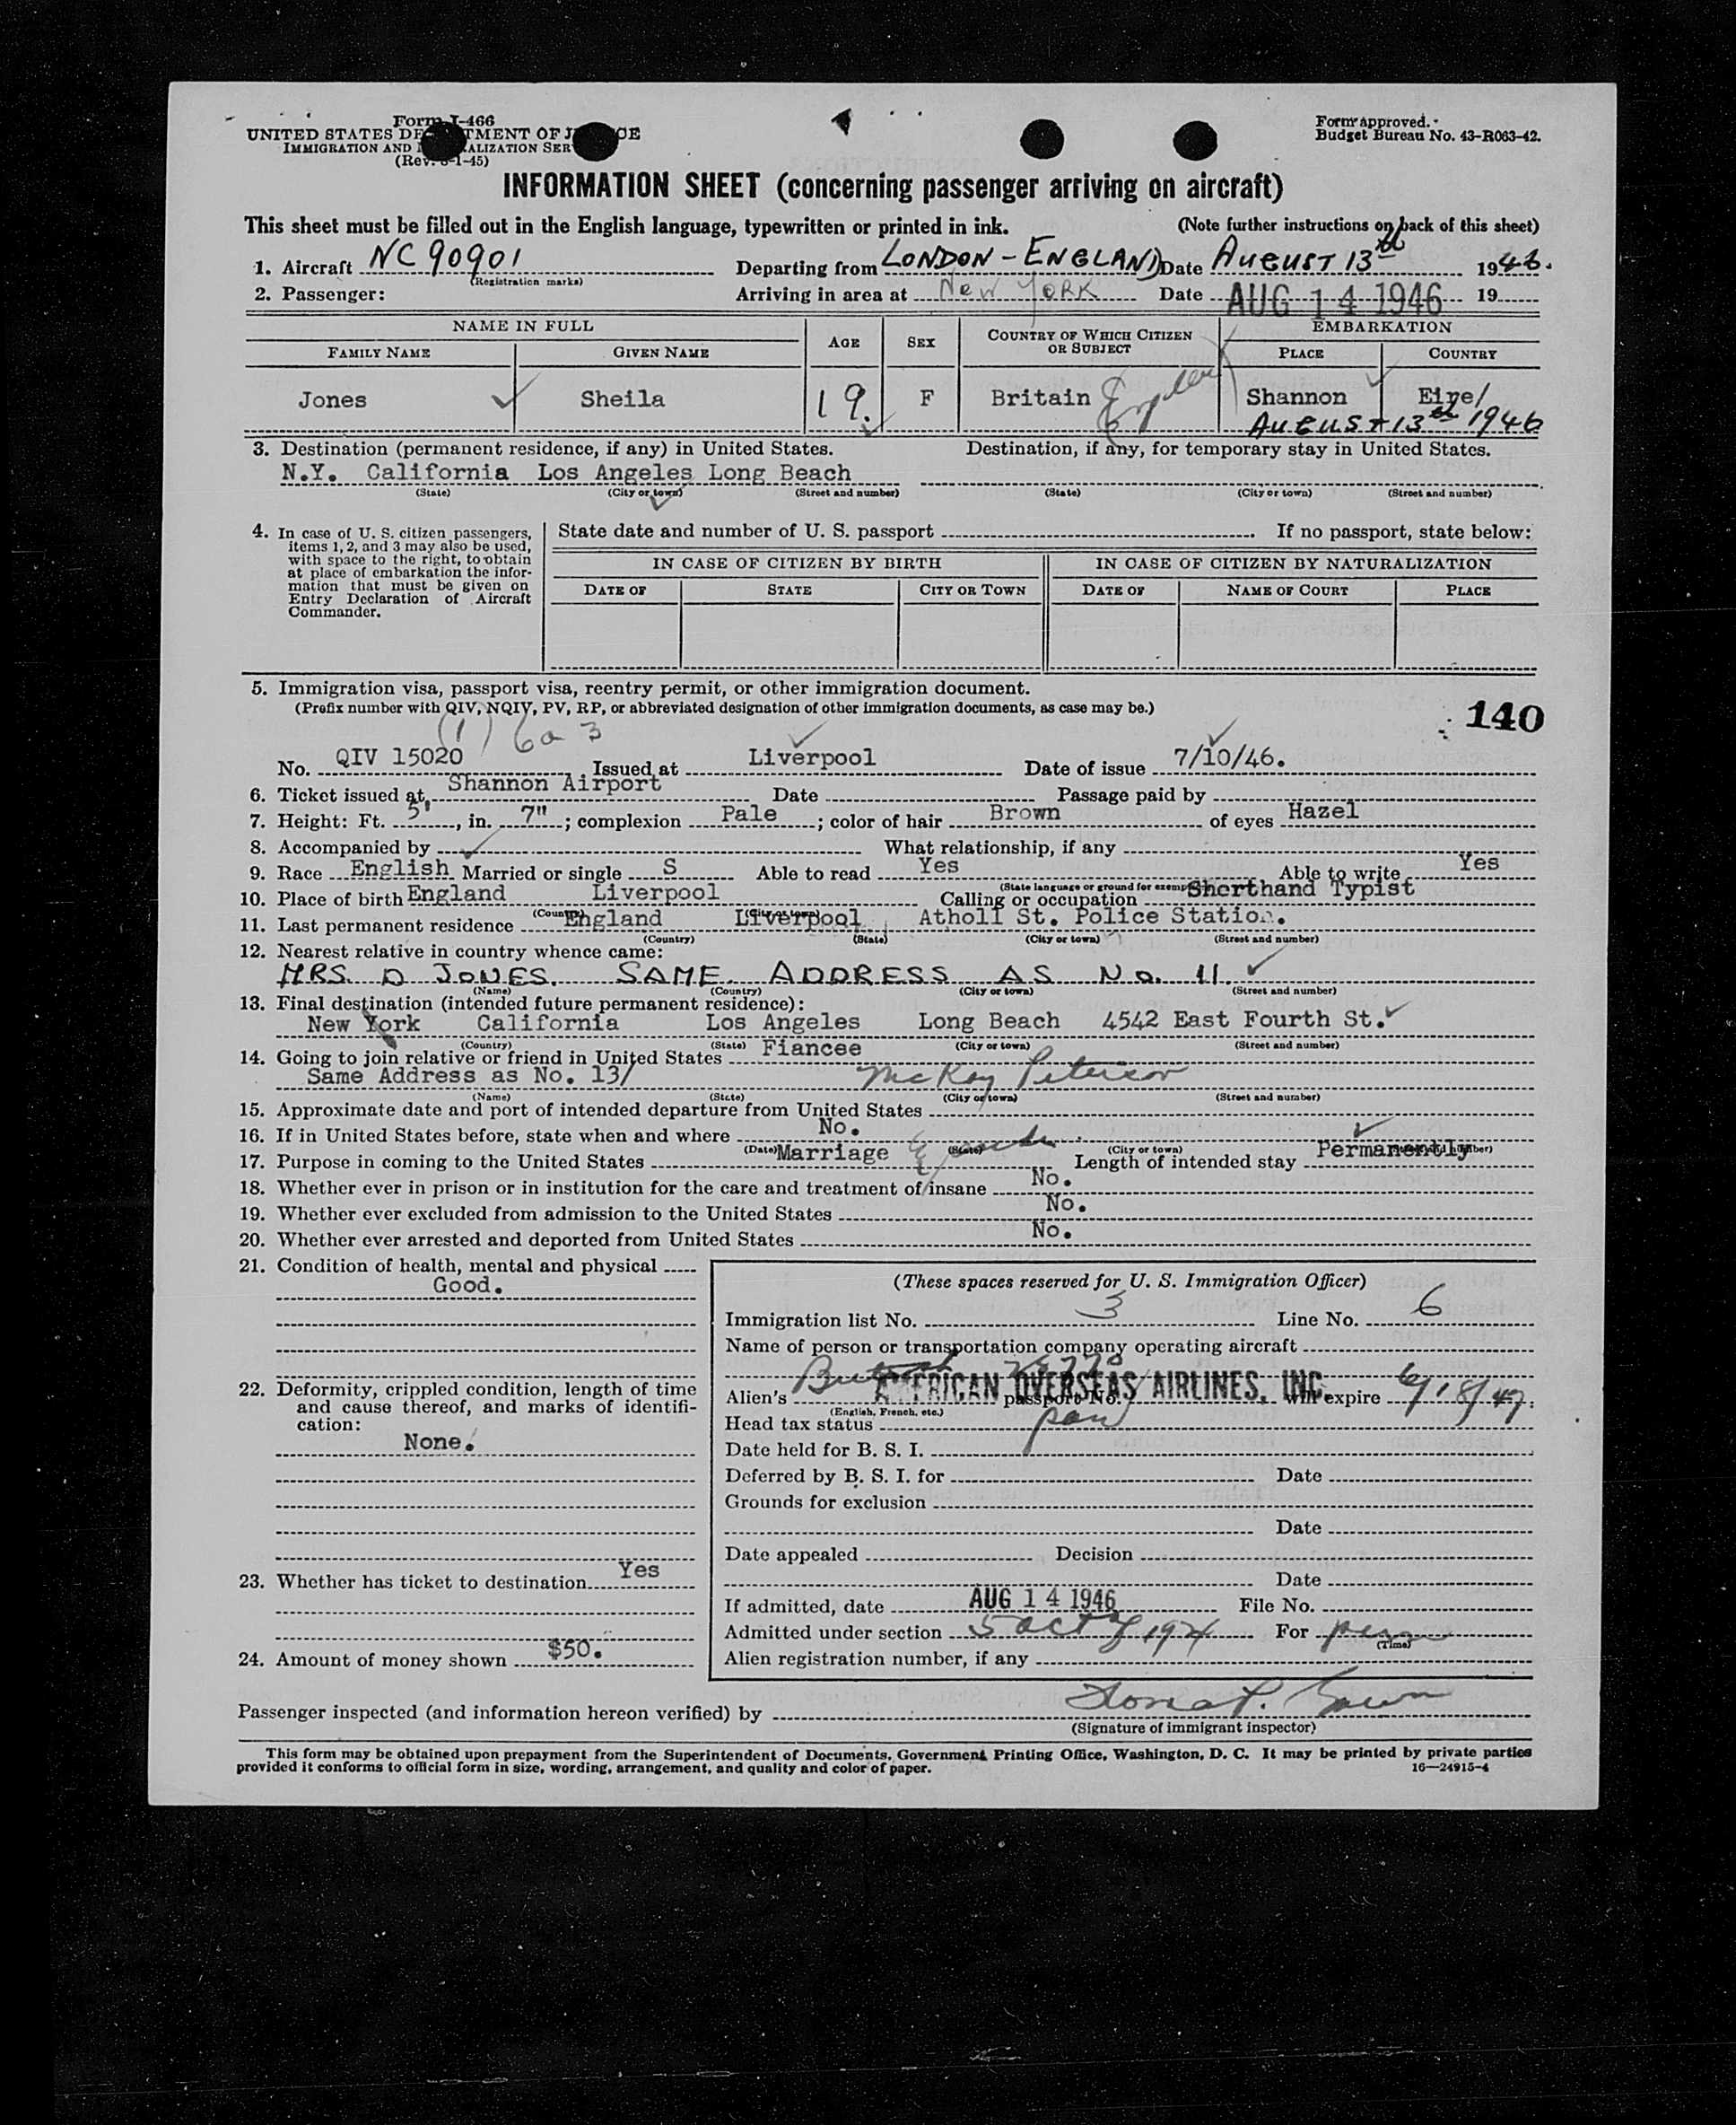 Form I-466
UNITED STATES DEPARTMENT OF JUSTICE
IMMIGRATION AND NATURALIZATION SERVICE
(Rev. 8-1-45)
Form approved.
Budget Bureau No. 43-R063-42.
INFORMATION SHEET (concerning passenger arriving on aircraft)
This sheet must be filled out in the English language, typewritten or printed in ink. (Note further instructions on back of this sheet)
1. Aircraft NC90901 Departing from LONDON - ENGLAND Date AUGUST 13th 1946.
(Registration marks)
2. Passenger: Arriving in area at NEW YORK Date AUG 14 1946 19
NAME IN FULL AGE SEX COUNTRY OF WHICH CITIZEN OR SUBJECT EMBARKATION
FAMILY NAME GIVEN NAME PLACE COUNTRY
Jones Sheila 19. F Britain Shannon Eire/
AUGUST 13th 1946
3. Destination (permanent residence, if any) in United States. Destination, if any, for temporary stay in United States.
N.Y. California Los Angeles Long Beach
(State) (City or town) (Street and number) (State) (City or town) (Street and number)
4. In case of U. S. citizen passengers, items 1, 2, and 3 may also be used, with space to the right, to obtain at place of embarkation the information that must be given on Entry Declaration of Aircraft Commander.
State date and number of U. S. passport If no passport, state below:
IN CASE OF CITIZEN BY BIRTH IN CASE OF CITIZEN BY NATURALIZATION
DATE OF STATE CITY OR TOWN DATE OF NAME OF COURT PLACE
5. Immigration visa, passport visa, reentry permit, or other immigration document.
(Prefix number with QIV, NQIV, PV, RP, or abbreviated designation of other immigration documents, as case may be.)
140
(1) 6a 3
No. QIV 15020 Issued at Liverpool Date of issue 7/10/46.
6. Ticket issued at Shannon Airport Date Passage paid by
7. Height: Ft. 5', in. 7"; complexion Pale; color of hair Brown of eyes Hazel
8. Accompanied by What relationship, if any
9. Race English Married or single S Able to read Yes Able to write Yes
(State language or ground for exemp
10. Place of birth England Liverpool Calling or occupation Shorthand Typist
(Country) (City or town)
11. Last permanent residence England Liverpool Atholl St. Police Station.
(Country) (State) (City or town) (Street and number)
12. Nearest relative in country whence came:
MRS D JONES. SAME ADDRESS AS No. 11.
(Name) (Country) (City or town) (Street and number)
13. Final destination (intended future permanent residence):
New York California Los Angeles Long Beach 4542 East Fourth St.
(Country) (State) (City or town) (Street and number)
14. Going to join relative or friend in United States Fiancee
Same Address as No. 13/ McKay Peterson
(Name) (State) (City or town) (Street and number)
15. Approximate date and port of intended departure from United States
16. If in United States before, state when and where No.
(Date) (State) (City or town) (Street and number)
17. Purpose in coming to the United States Marriage Length of intended stay Permanently
18. Whether ever in prison or in institution for the care and treatment of insane No.
19. Whether ever excluded from admission to the United States No.
20. Whether ever arrested and deported from United States No.
21. Condition of health, mental and physical
Good.
22. Deformity, crippled condition, length of time and cause thereof, and marks of identification:
None.
23. Whether has ticket to destination Yes
24. Amount of money shown $50.
(These spaces reserved for U. S. Immigration Officer)
Immigration list No. 3 Line No. 6
Name of person or transportation company operating aircraft
AMERICAN OVERSEAS AIRLINES, INC.
Alien's British passport No. will expire 6/18/47.
(English, French, etc.)
Head tax status paid
Date held for B. S. I.
Deferred by B. S. I. for Date
Grounds for exclusion
Date
Date appealed Decision
Date
If admitted, date AUG 14 1946 File No.
Admitted under section 5 act of 1924 For perm
(Time)
Alien registration number, if any
Passenger inspected (and information hereon verified) by
(Signature of immigrant inspector)
This form may be obtained upon prepayment from the Superintendent of Documents, Government Printing Office, Washington, D. C. It may be printed by private parties
provided it conforms to official form in size, wording, arrangement, and quality and color of paper. 16—24915-4